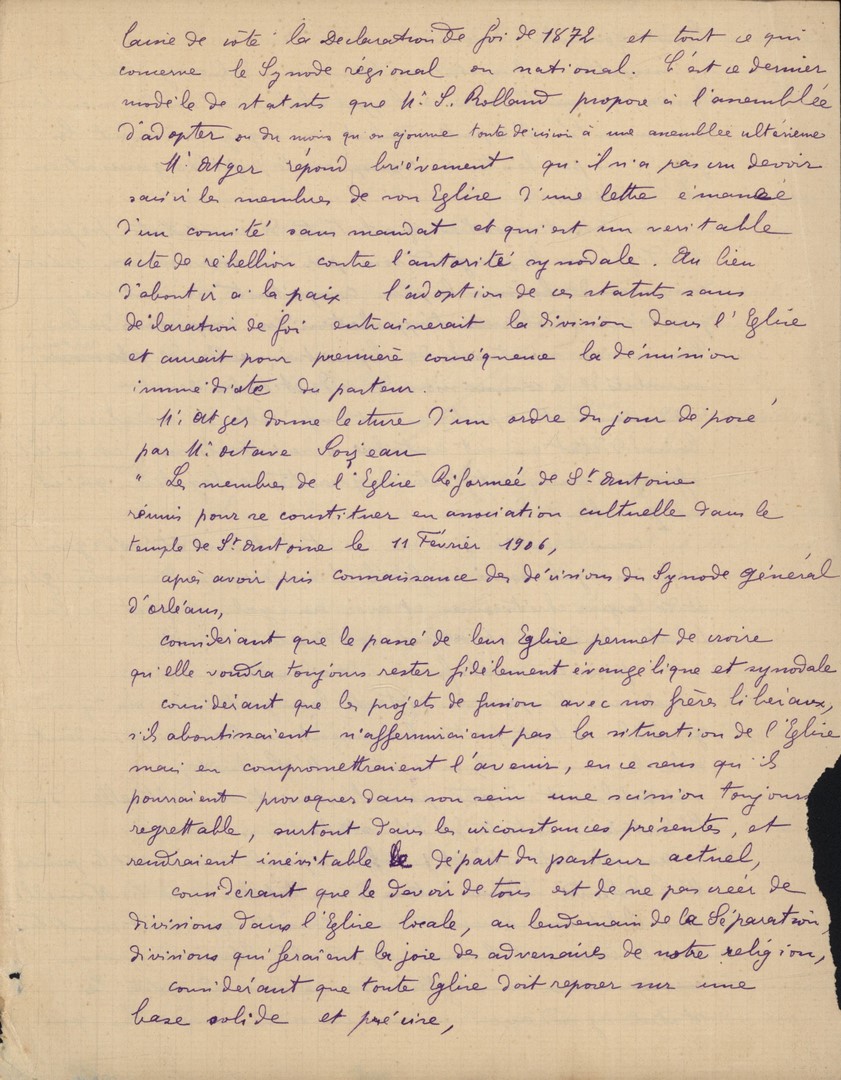 laisse de côté la Déclaration de foi de 1872 et tout ce qui
concerne le Synode régional ou national. C'est ce dernier
modèle de statuts que Mr. S. Rolland propose à l'assemblée
d'adopter ou du moins qu'on ajourne toute décision à une assemblée ultérieure
Mr. Atger répond brièvement qu'il n'a pas cru devoir
saisir les membres de son Eglise d'une lettre émanée
d'un comité sans mandat et qui est un véritable
acte de rébellion contre l'autorité synodale. Au lieu
d'aboutir à la paix l'adoption de ces statuts sans
déclaration de foi entrainerait la division dans l'Eglise
et aurait pour première conséquence la démission
immédiate du pasteur.
Mr. Atger donne lecture d'un ordre du jour déposé
par Mr. Octave Sorjeau
" Les membres de l'Eglise Réformée de St. Antoine
réunis pour se constituer en association cultuelle dans le
temple de St. Antoine le 11 Février 1906,
après avoir pris connaissance des décisions du Synode général
d'Orléans,
considérant que le passé de leur Eglise permet de croire
qu'elle voudra toujours rester fidèlement évangélique et synodale
considérant que les projets de fusion avec nos frères libéraux,
s'ils aboutissaient n'affermiraient pas la situation de l'Eglise
mais en compromettraient l'avenir, en ce sens qu'ils
pourraient provoquer dans son sein une scission toujours
regrettable, surtout dans les circonstances présentes, et
rendraient inévitable le départ du pasteur actuel,
considérant que le devoir de tous est de ne pas créer de
divisions dans l'Eglise locale, au lendemain de la Séparation,
divisions qui feraient la joie des adversaires de notre religion,
considérant que toute Eglise doit reposer sur une
base solide et précise,